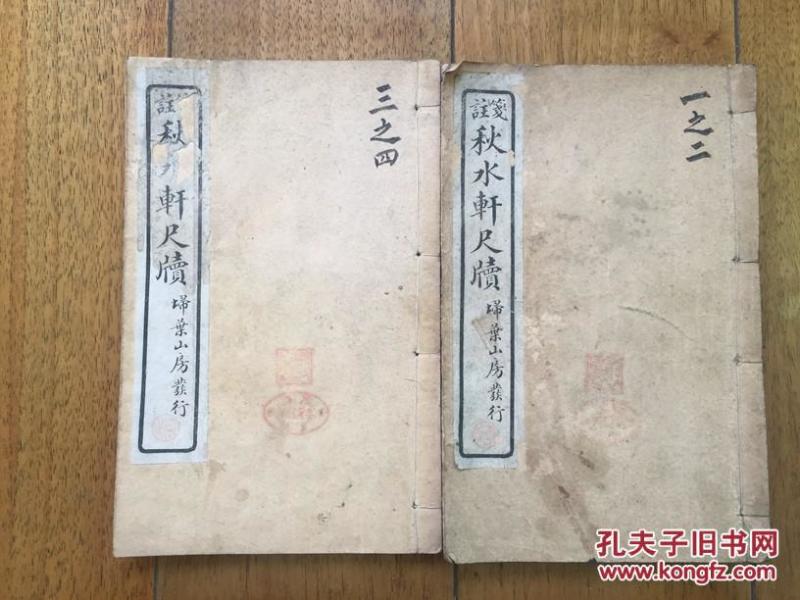 一之二
箋註
秋水軒尺牘
埽葉山房發行
三之四
註
秋水軒尺牘
埽葉山房發行
孔夫子旧书网
www.kongfz.com